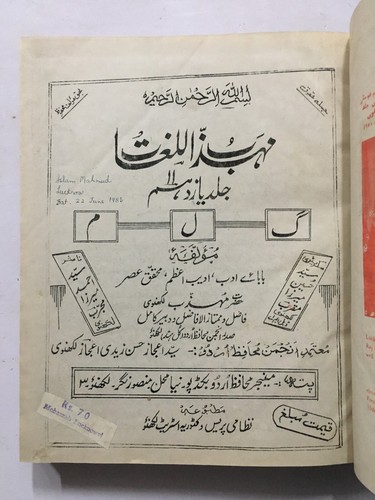 بسم اللہ الرحمٰن الرحیم
مہذب اللغات
جلد یازدہم
۱۱
Salam Mahmud
Lucknow
Sat. 23 June 1982
گ ل م
مؤلفہ
بابائے ادب، ادیب اعظم، محقق عصر
حضرت مہذب لکھنوی
فاضل و ممتاز الافاضل و دبیر کامل
صدر انجمن محافظ اردو کل ہند لکھنؤ
ناشر
احمد سعید
میرزا
لکھنوی
معتمد انجمن محافظ اردو:- سید اعجاز حسن زیدی اعجاز لکھنوی
پتہ:- مینیجر محافظ اردو بکڈپو۔ نیا محل منصور نگر۔ لکھنؤ ۳
Rs. 70
مطبوعہ
نظامی پریس وکٹوریہ اسٹریٹ لکھنؤ
قیمت مبلغ